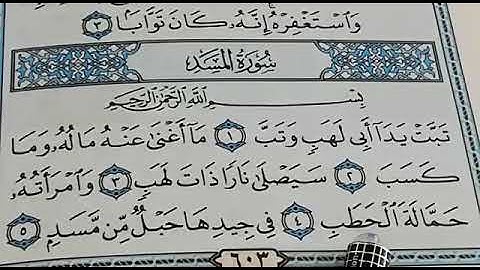 وَاسْتَغْفِرْهُ إِنَّهُ كَانَ تَوَّابًا ٣
سُورَةُ المَسَد
بِسْمِ اللَّهِ الرَّحْمَٰنِ الرَّحِيمِ
تَبَّتْ يَدَا أَبِي لَهَبٍ وَتَبَّ ١ مَا أَغْنَىٰ عَنْهُ مَالُهُ وَمَا
كَسَبَ ٢ سَيَصْلَىٰ نَارًا ذَاتَ لَهَبٍ ٣ وَامْرَأَتُهُ
حَمَّالَةَ الْحَطَبِ ٤ فِي جِيدِهَا حَبْلٌ مِّن مَّسَدٍ ٥
٦٠٣